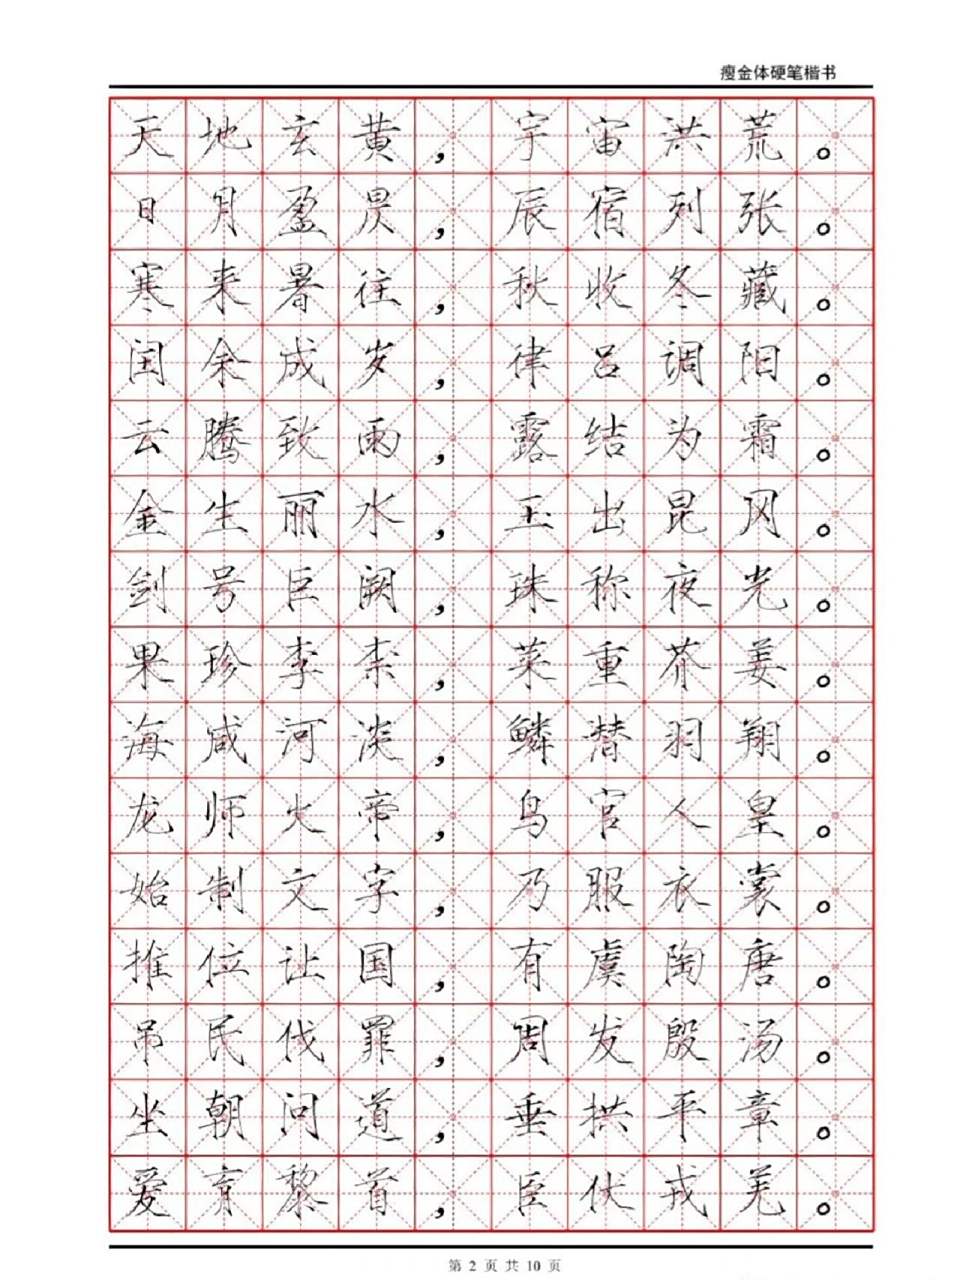 瘦金体硬笔楷书
天地玄黄，宇宙洪荒。
日月盈昃，辰宿列张。
寒来暑往，秋收冬藏。
闰余成岁，律吕调阳。
云腾致雨，露结为霜。
金生丽水，玉出昆冈。
剑号巨阙，珠称夜光。
果珍李柰，菜重芥姜。
海咸河淡，鳞潜羽翔。
龙师火帝，鸟官人皇。
始制文字，乃服衣裳。
推位让国，有虞陶唐。
吊民伐罪，周发殷汤。
坐朝问道，垂拱平章。
爱育黎首，臣伏戎羌。
第 2 页 共 10 页